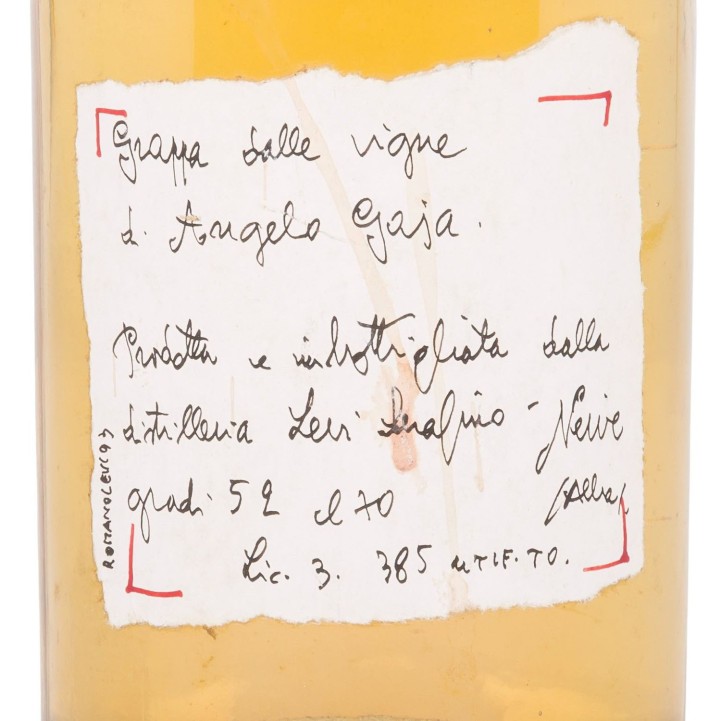 Grappa dalle vigne
di Angelo Gaja.
Prodotta e imbottigliata dalla
distilleria Levi Serafino - Neive
gradi 52 cl 70 (Alba)
Lic. 3. 385 UTIF. TO.
ROMANOLEVI93